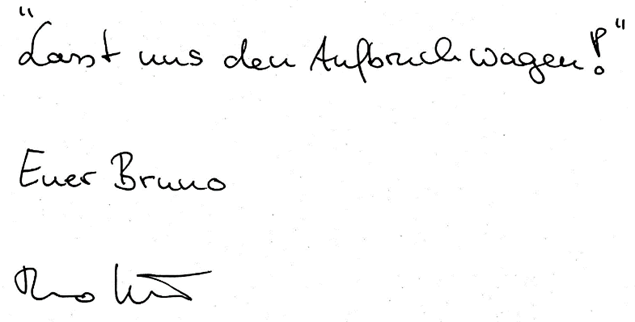 "Lasst uns den Aufbruch wagen!"
Euer Bruno